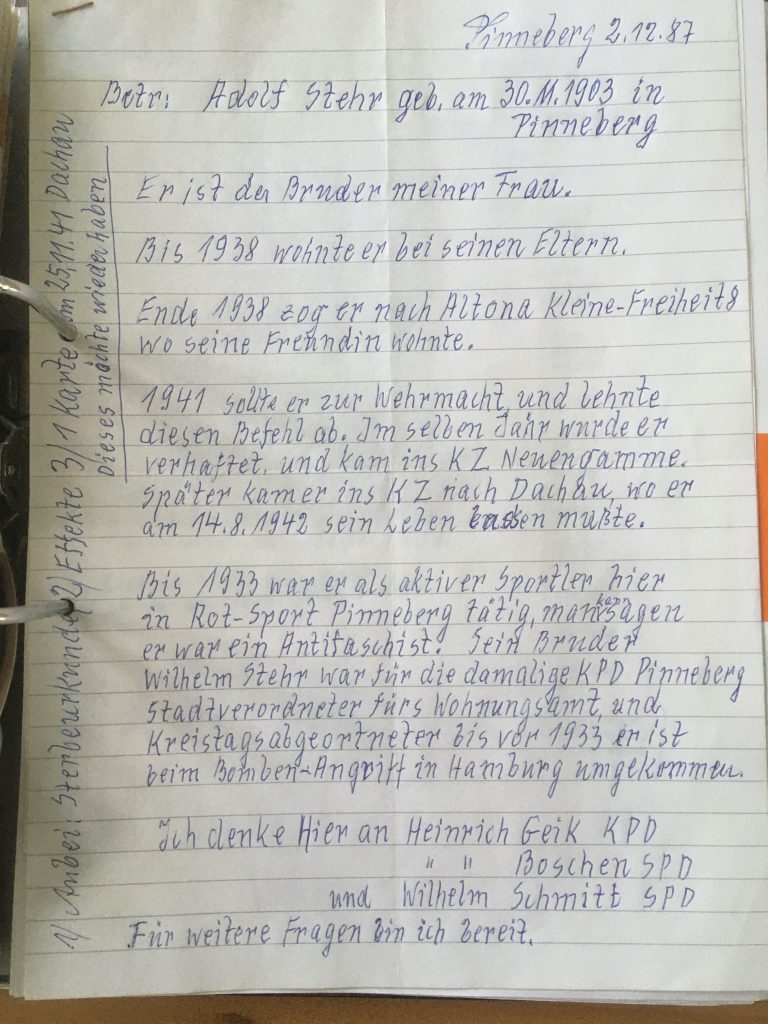 Pinneberg 2.12.87
Betr: Adolf Stehr geb. am 30.11.1903 in
Pinneberg
Er ist der Bruder meiner Frau.
Bis 1938 wohnte er bei seinen Eltern.
Ende 1938 zog er nach Altona Kleine-Freiheit 8
wo seine Freundin wohnte.
1941 sollte er zur Wehrmacht, und lehnte
diesen Befehl ab. Im selben Jahr wurde er
verhaftet, und kam ins KZ Neuengamme.
Später kam er ins KZ nach Dachau, wo er
am 14.8.1942 sein Leben lassen mußte.
Bis 1933 war er als aktiver Sportler hier
in Rot-Sport Pinneberg tätig, man kann sagen
er war ein Antifaschist. Sein Bruder
Wilhelm Stehr war für die damalige KPD Pinneberg
Stadtverordneter fürs Wohnungsamt, und
Kreistagsabgeortneter bis vor 1933 er ist
beim Bomben-Angriff in Hamburg umgekommen.
Ich denke Hier an Heinrich Geik KPD
" " Boschen SPD
und Wilhelm Schmitt SPD
Für weitere Fragen bin ich bereit.
1/ Anbei: Sterbeurkunde 2/ Effekte 3/ 1 Karte vom 25.11.41 Dachau
Dieses möchte wieder haben